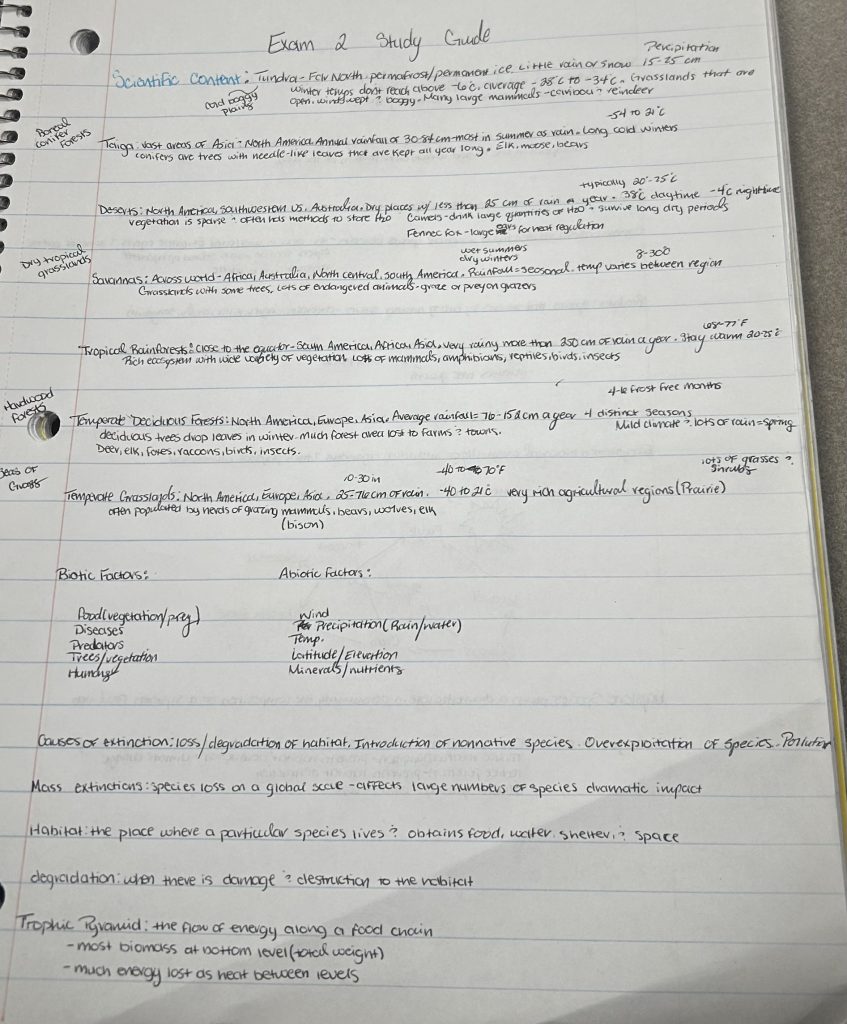 Exam 2 Study Guide
Percipitation
Scientific Content: Tundra - Far North. permafrost/permanent ice. Little rain or snow 15-25 cm
winter temps don't reach above -6°C, average -28°C to -34°C. Grasslands that are
cold boggy plains
open, windswept & boggy. Many large mammals - caribou & reindeer
-54 to 21°C
Boreal conifer forests
Taiga: vast areas of Asia & North America. Annual rainfall of 30-84 cm - most in summer as rain. Long cold winters
conifers are trees with needle-like leaves that are kept all year long. Elk, moose, bears
typically 20-25°C
Deserts: North America, Southwestern US, Australia. Dry places w/ less than 25 cm of rain a year. 38°C daytime -4°C nighttime
vegetation is sparse & often has methods to store H2O Camels - drink large quantities of H2O & survive long dry periods
Fennec fox - large ears for heat regulation
Dry tropical grasslands
wet summers
dry winters
8-30°C
Savannas: Across world - Africa, Australia, North central, South America. Rainfall = seasonal. temp varies between region
Grasslands with some trees, lots of endangered animals - graze or prey on grazers
68-77°F
Tropical Rainforests: close to the equator - South America, Africa, Asia, very rainy more than 250 cm of rain a year. Stay warm 20-25°C
Rich ecosystem with wide variety of vegetation. Lots of mammals, amphibians, reptiles, birds, insects
Hardwood Forests
4-6 frost free months
Temperate Deciduous Forests: North America, Europe, Asia. Average rainfall = 76-152 cm a year 4 distinct seasons
deciduous trees drop leaves in winter. much forest area lost to farms & towns. Mild climate & lots of rain = spring
Deer, elk, foxes, racoons, birds, insects.
Seas of Grass
10-30 in
-40 to 70°F
lots of grasses &
shrubs
Temperate Grasslands: North America, Europe, Asia. 25-76 cm of rain. -40 to 21°C very rich agricultural regions (Prairie)
often populated by herds of grazing mammals, bears, wolves, elk
(bison)
Biotic Factors: Abiotic Factors:
Food (vegetation/prey) Wind
Diseases Precipitation (Rain/water)
Predators Temp.
Trees/vegetation Latitude/Elevation
Humans Minerals/nutrients
Causes of extinction: loss/degradation of habitat, Introduction of nonnative species. Overexploitation of species. Pollution
Mass extinctions: species loss on a global scale - affects large numbers of species dramatic impact
Habitat: the place where a particular species lives & obtains food, water, shelter, & space
degradation: when there is damage & destruction to the habitat
Trophic Pyramid: the flow of energy along a food chain
- most biomass at bottom level (total weight)
- much energy lost as heat between levels